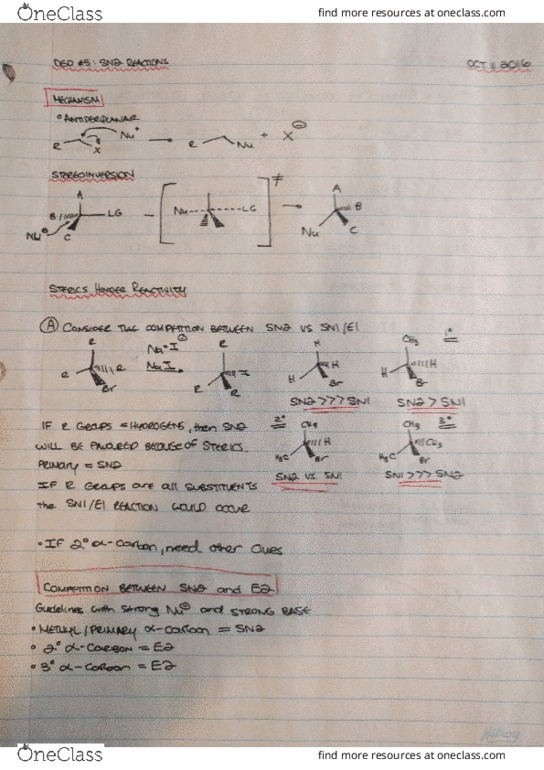 OneClass find more resources at oneclass.com
DGD #5: SN2 REACTIONS OCT 11 2016
MECHANISM
• ANTIPERIPLANAR
R X Nu⁻ → R Nu + X⊖
STEREOINVERSION
A
B LG
C
Nu⊖
Nu LG ≠
A
B
Nu C
STERICS HINDER REACTIVITY
Ⓐ CONSIDER THE COMPETITION BETWEEN SN2 VS SN1/E1
R R H CH₃ 1°
R R Br Na⁺I⊖
NaI
R I R H H Br H H Br
SN2 >>> SN1 SN2 > SN1
IF R GROUPS = HYDROGENS, then SN2
2° CH₃ H H₃C Br 3° CH₃ CH₃ H₃C Br
WILL BE FAVOURED BECAUSE OF STERICS.
PRIMARY = SN2
SN2 VS SN1 SN1 >>> SN2
IF R GROUPS are all SUBSTITUENTS
the SN1/E1 REACTION WOULD OCCUR
• IF 2° α-carbon, need other clues
COMPETITION BETWEEN SN2 and E2
Guidelines with strong Nu⊖ and STRONG BASE
• METHYL/PRIMARY α-carbon = SN2
• 2° α-CARBON = E2
• 3° α-Carbon = E2
OneClass find more resources at oneclass.com